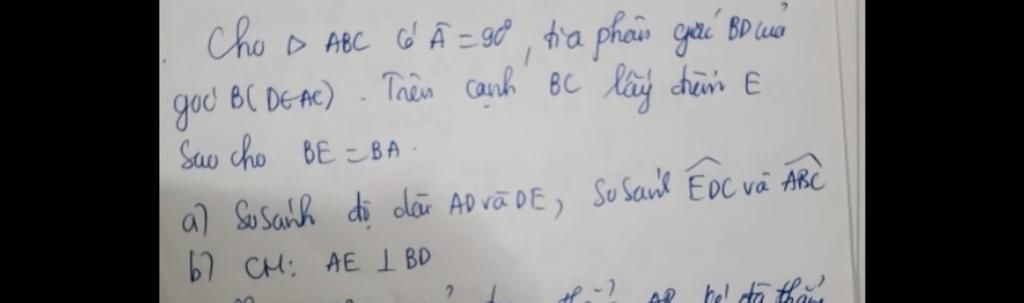 Cho ▷ ABC có Â = 90°, tia phân giác BD của
góc B (D∈AC). Trên cạnh BC lấy điểm E
Sao cho BE = BA.
a) So sánh độ dài AD và DE, So sánh \widehat{EDC} và \widehat{ABC}
b) CM: AE ⊥ BD